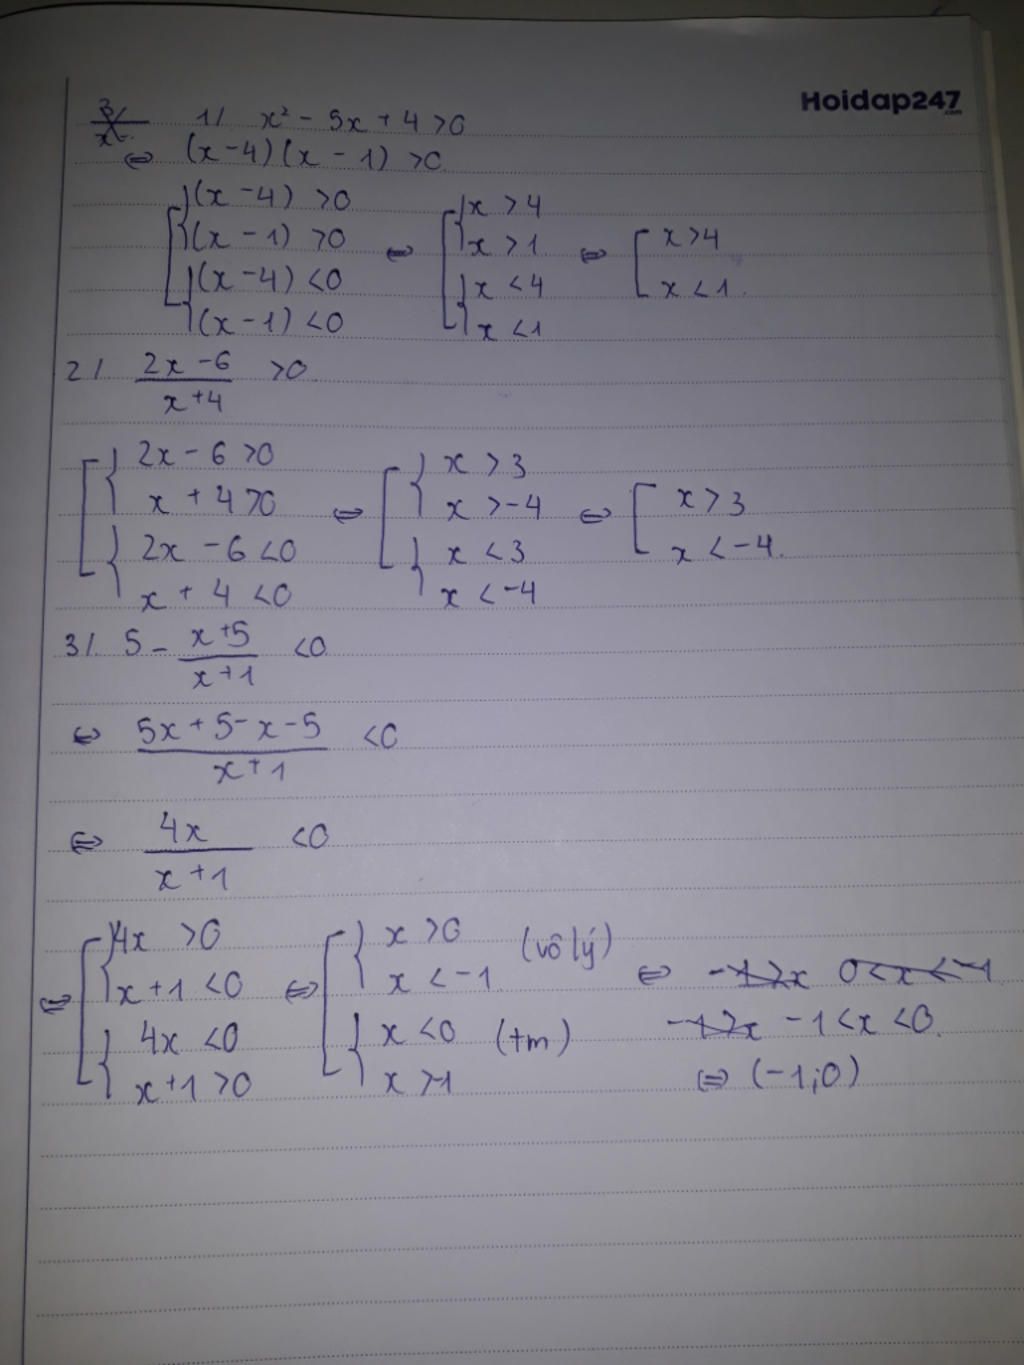 Hoidap247
.com
1/ x² - 5x + 4 >0
⇔ (x-4)(x-1) >0
[ { (x-4) >0
(x-1) >0
{ (x-4) <0
(x-1) <0
⇔ [ { x >4
x >1
{ x <4
x <1
⇔ [ x>4
x<1.
2/ (2x-6)/(x+4) >0
[ { 2x-6 >0
x+4 >0
{ 2x-6 <0
x+4 <0
⇔ [ { x >3
x >-4
{ x <3
x <-4
⇔ [ x>3
x<-4.
3/. 5 - (x+5)/(x+1) <0
⇔ (5x+5-x-5)/(x+1) <0
⇔ 4x/(x+1) <0
⇔ [ { 4x >0
x+1 <0
{ 4x <0
x+1 >0
⇔ [ { x >0
x <-1 (vô lý)
{ x <0
x >-1 (tm)
⇔ 0<x<-1
-1<x<0.
⇔ (-1;0)